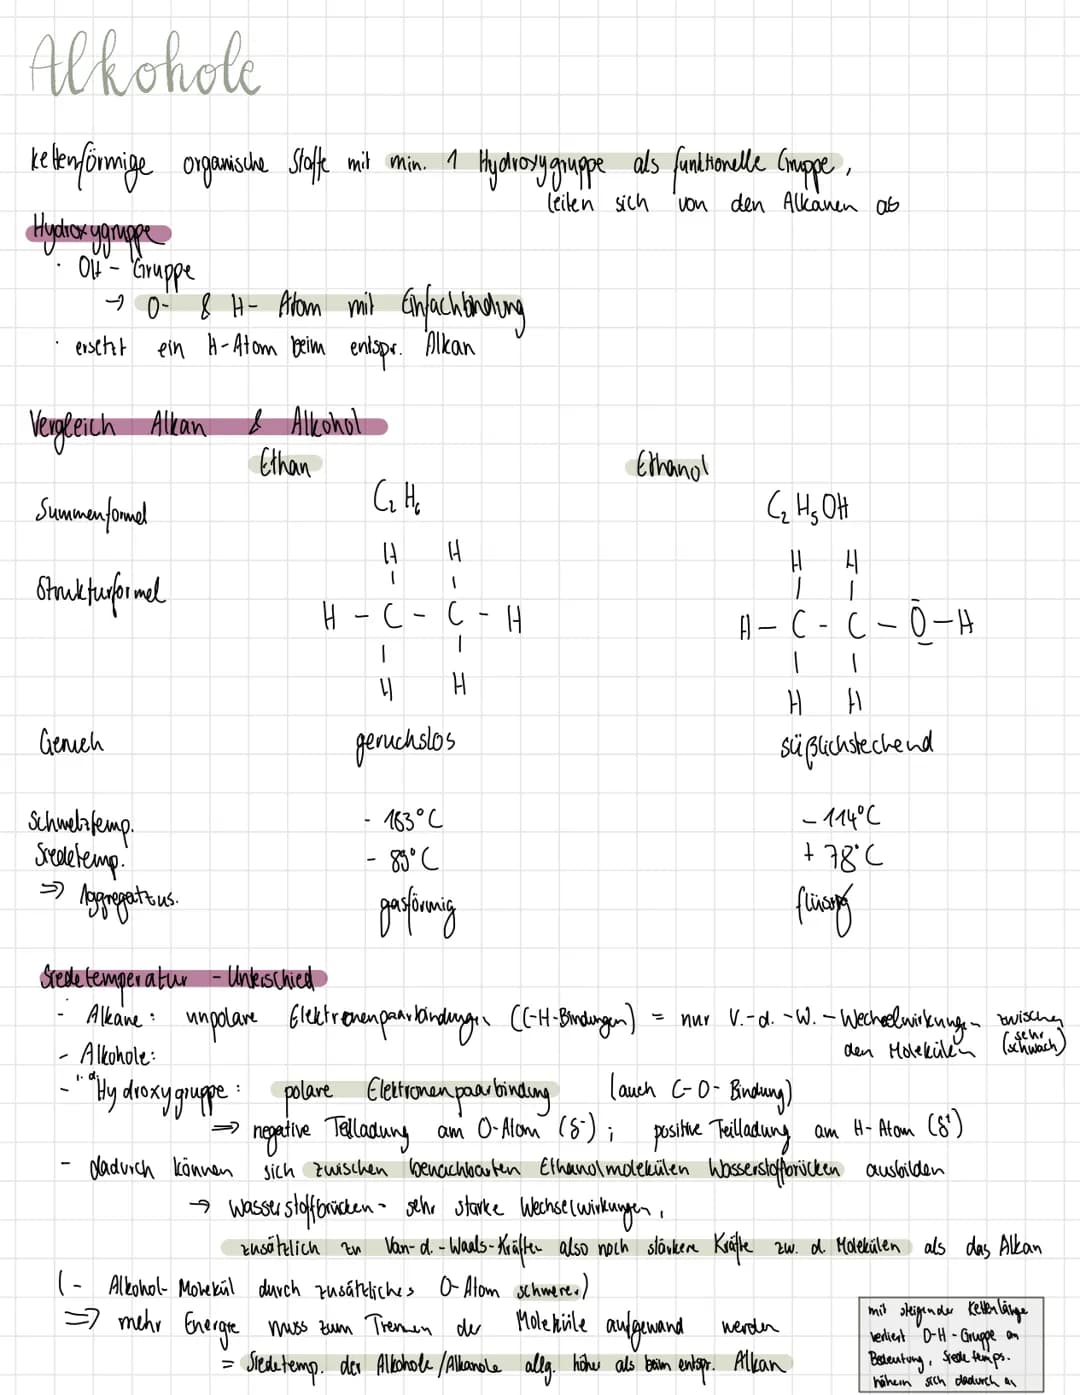 Alkohole
kettenförmige organische Stoffe mit min. 1 Hydroxygruppe als funktionelle Gruppe,
leiten sich von den Alkanen ab
Hydroxygruppe
· OH - Gruppe
→ O- & H- Atom mit Einfachbindung
· ersetzt ein H-Atom beim entspr. Alkan
Vergleich Alkan & Alkohol
Ethan Ethanol
Summenformel C₂H₆ C₂H₅OH
Strukturformel
H H H H
H - C - C - H H - C - C - O - H
H H H H
Geruch geruchslos süßlichstechend
Schmelztemp. - 183°C - 114°C
Siedetemp. - 89°C + 78°C
⇒ Aggregatzus. gasförmig flüssig
Siedetemperatur - Unterschied
- Alkane: unpolare Elektronenpaarbindungen (C-H-Bindungen) = nur V.-d.-W.-Wechselwirkungen zwischen
den Molekülen (sehr schwach)
- Alkohole:
- "i. d. Hydroxygruppe: polare Elektronenpaarbindung (auch C-O-Bindung)
⇒ negative Teilladung am O-Atom (δ⁻); positive Teilladung am H-Atom (δ⁺)
- dadurch können sich zwischen benachbarten Ethanolmolekülen Wasserstoffbrücken ausbilden
→ Wasserstoffbrücken - sehr starke Wechselwirkungen,
zusätzlich zu Van-d.-Waals-Kräften also noch stärkere Kräfte zw. d. Molekülen als das Alkan
(- Alkohol-Molekül durch zusätzliches O-Atom schwerer)
⇒ mehr Energie muss zum Trennen der Moleküle aufgewand werden
= Siedetemp. der Alkohole/Alkanole allg. höher als beim entspr. Alkan
mit steigender Kettenlänge
verliert O-H-Gruppe an
Bedeutung, Siedetemps.
nähern sich dadurch an